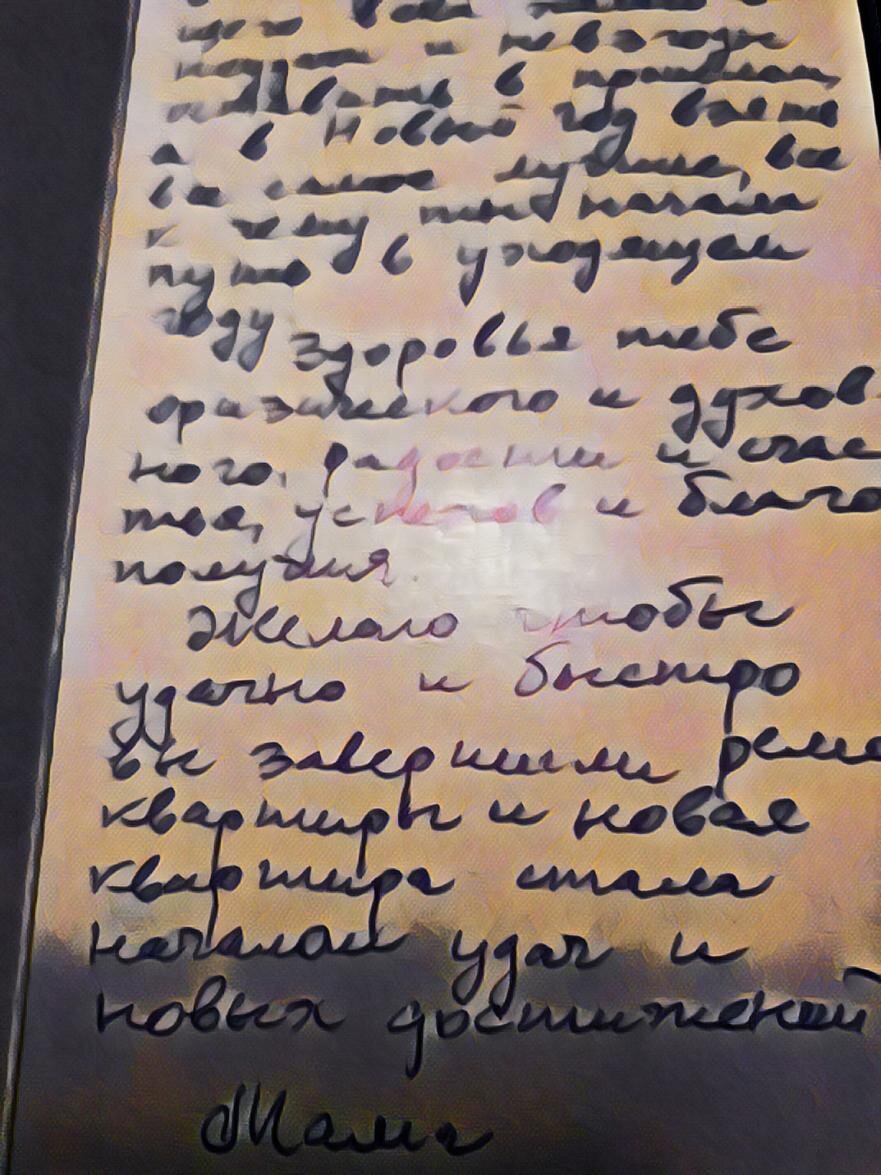 и невзгоды
оставить в прошлом,
а в Новый год взять
все самое лучшее, все
к чему ты начала
путь в уходящем
году
Здоровья тебе
физического и духов-
ного, радости и счас
тья, успехов и благо
получия.
Желаю чтобы
удачно и быстро
вы завершили ремо
квартиры и новая
квартира стала
началом удач и
новых достижений
Мама